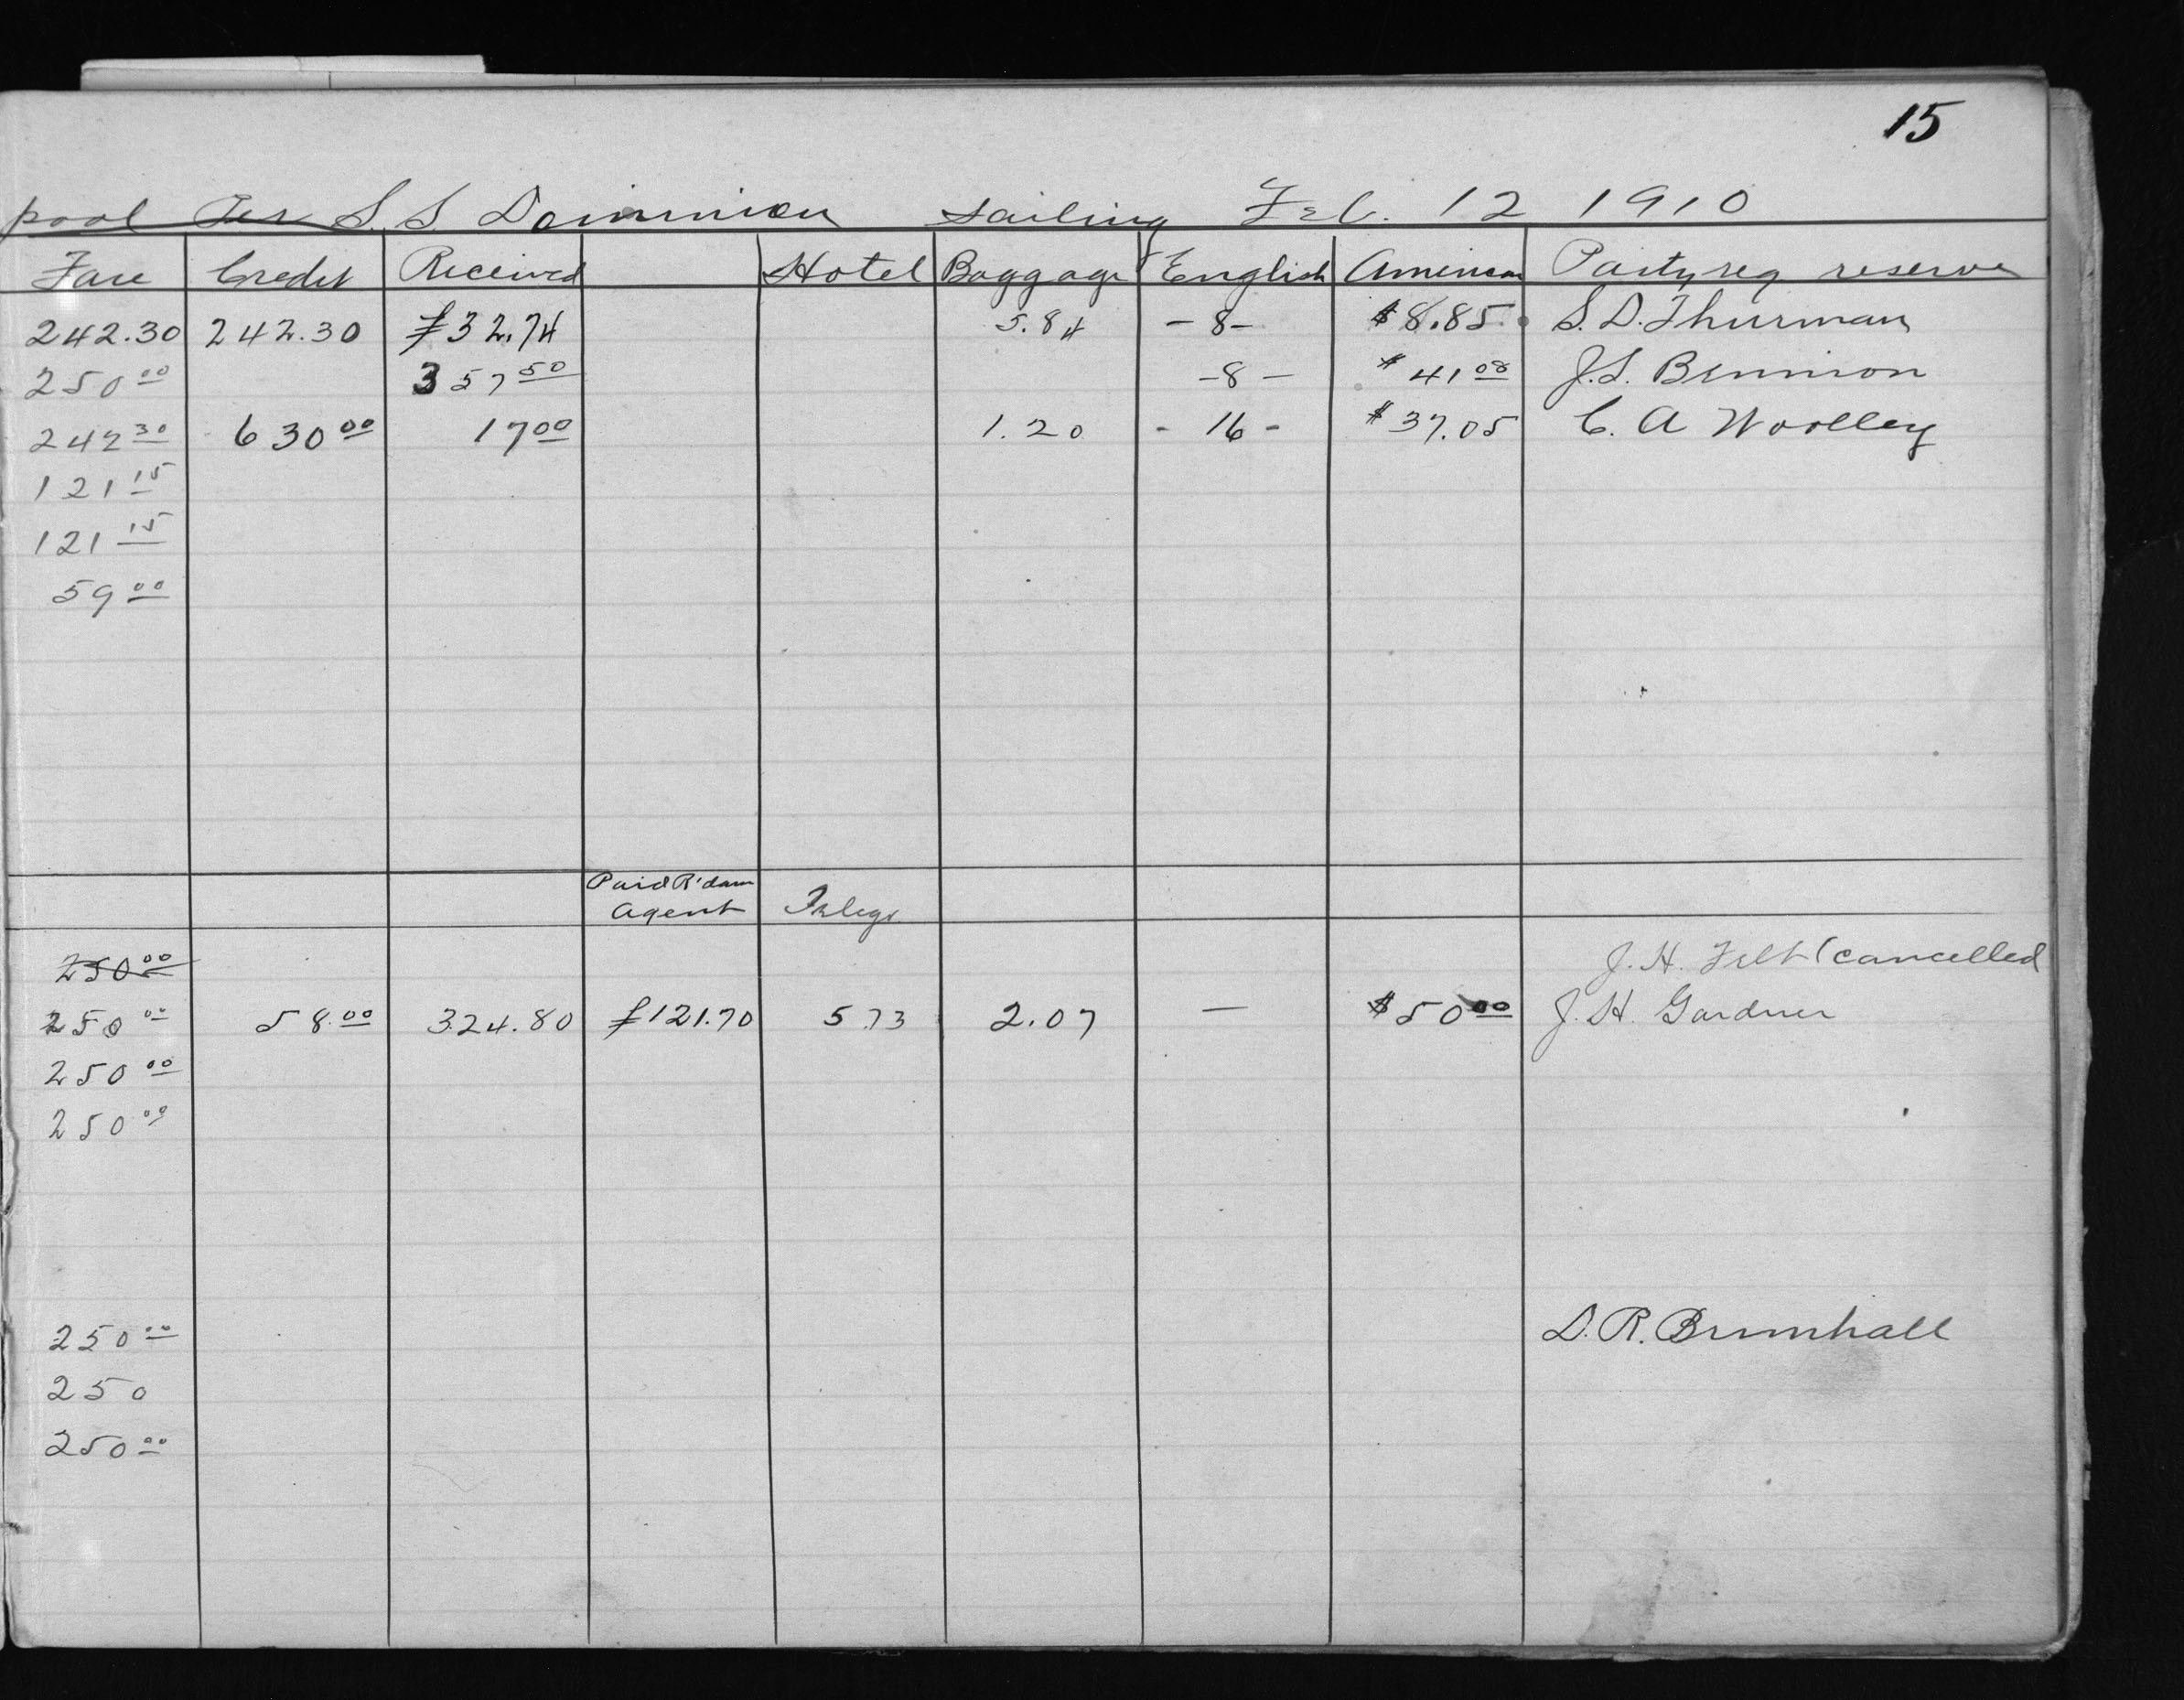 15
pool Per S.S. Dominion sailing Feb. 12 1910
Fare Credit Received Hotel Baggage English American Party req reserve
242.30 242.30 £32.74 5.84 -8- $8.85 S. D. Thurman
250 00 357 50 -8- $41 08 J. S. Bennion
242 30 630 00 17 00 1.20 -16- $37.05 C. A Woolley
121 15
121 15
59 00
Paid R'dam
Agent Telegr
250 00 J. H. Felt (cancelled
250 00 58.00 324.80 £121.70 5.73 2.07 — $50 00 J. H. Gardner
250 00
250 00
250 00 D. R. Brimhall
250
250 00